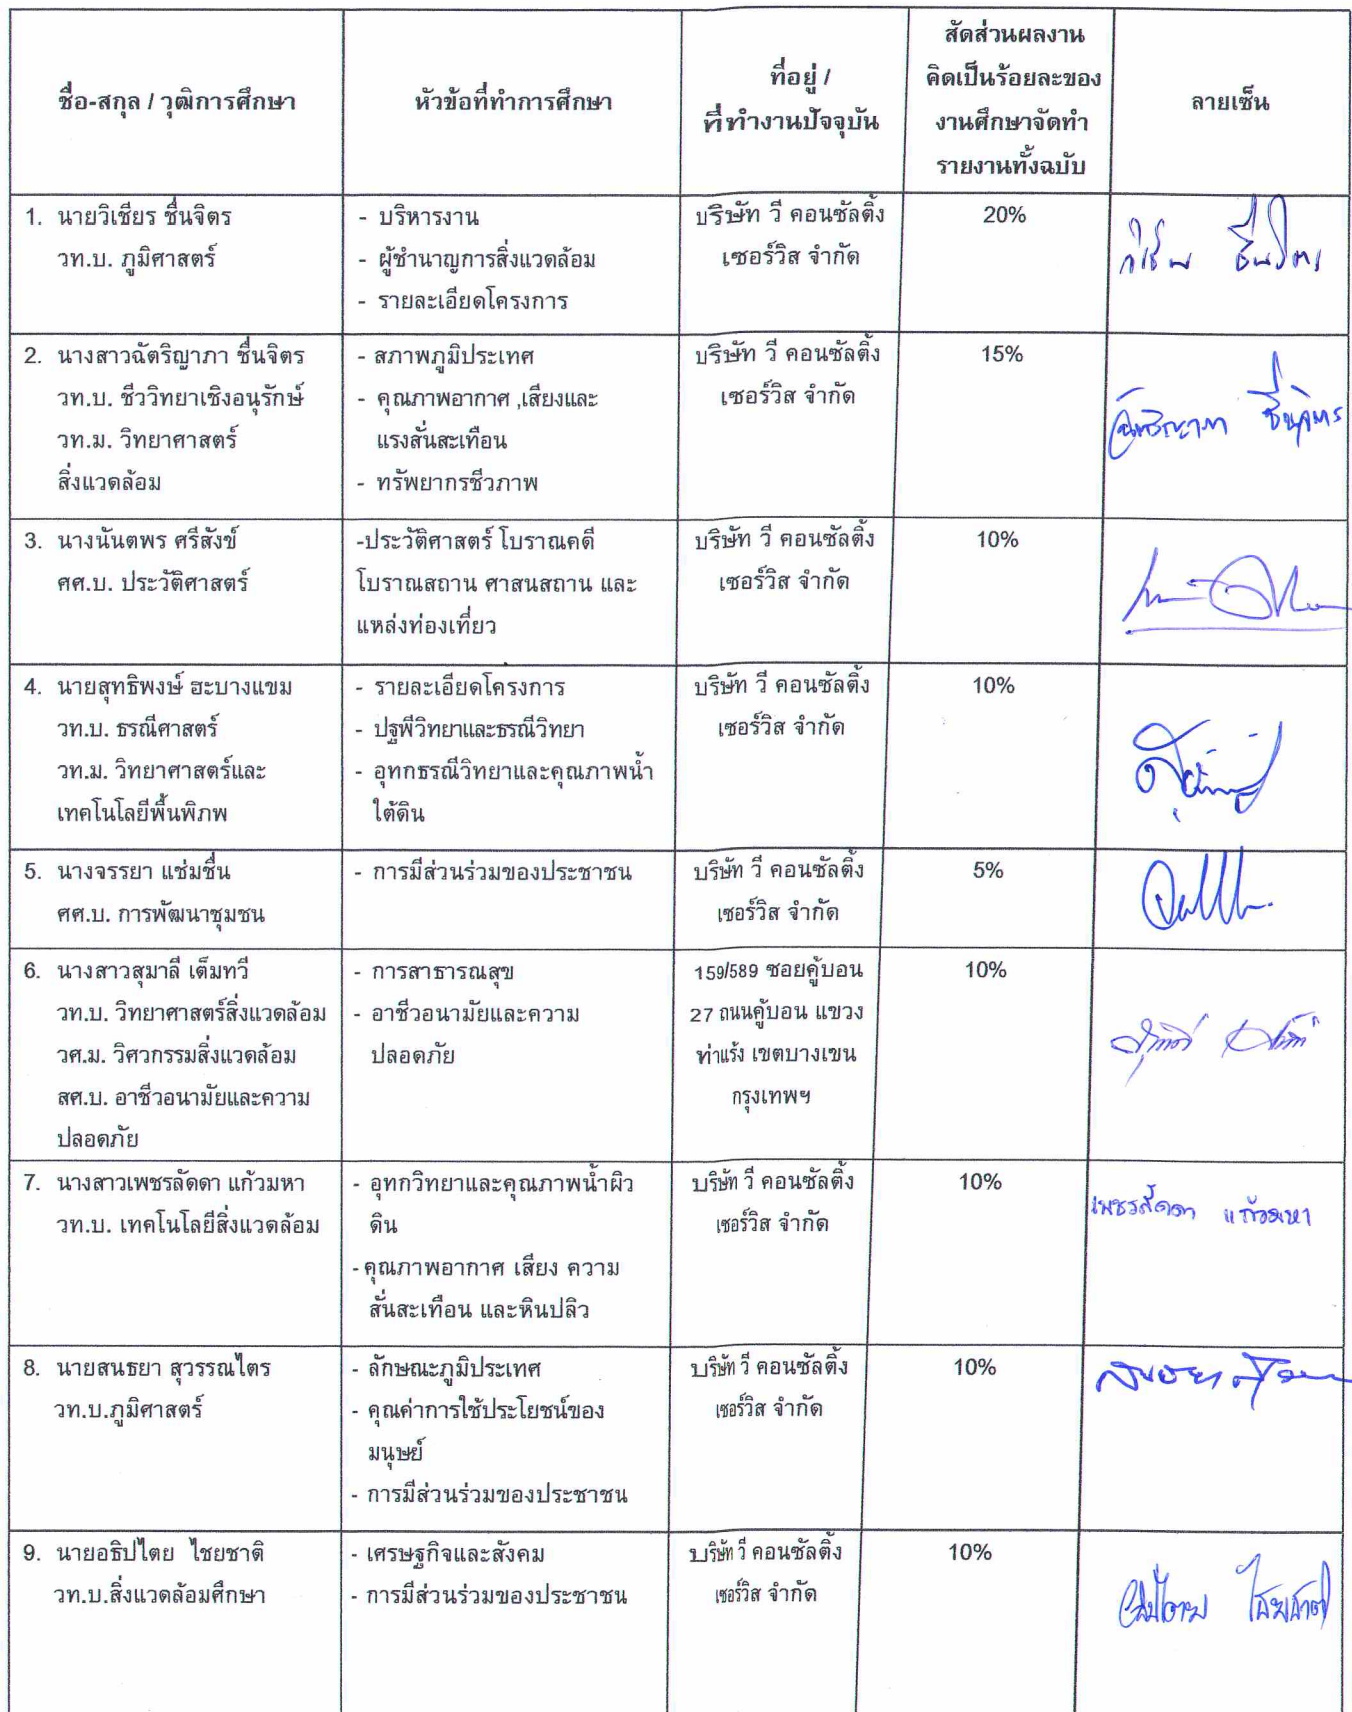 ชื่อ-สกุล / วุฒิการศึกษา
หัวข้อที่ทำการศึกษา
ที่อยู่ /
ที่ทำงานปัจจุบัน
สัดส่วนผลงาน
คิดเป็นร้อยละของ
งานศึกษาจัดทำ
รายงานทั้งฉบับ
ลายเซ็น
1. นายวิเชียร ชื่นจิตร
วท.บ. ภูมิศาสตร์
- บริหารงาน
- ผู้ชำนาญการสิ่งแวดล้อม
- รายละเอียดโครงการ
บริษัท วี คอนซัลติ้ง
เซอร์วิส จำกัด
20%
วิเชียร ชื่นจิตร
2. นางสาวฉัตริญาภา ชื่นจิตร
วท.บ. ชีววิทยาเชิงอนุรักษ์
วท.ม. วิทยาศาสตร์
สิ่งแวดล้อม
- สภาพภูมิประเทศ
- คุณภาพอากาศ ,เสียงและ
แรงสั่นสะเทือน
- ทรัพยากรชีวภาพ
บริษัท วี คอนซัลติ้ง
เซอร์วิส จำกัด
15%
ฉัตริญาภา ชื่นจิตร
3. นางนันตพร ศรีสังข์
ศศ.บ. ประวัติศาสตร์
-ประวัติศาสตร์ โบราณคดี
โบราณสถาน ศาสนสถาน และ
แหล่งท่องเที่ยว
บริษัท วี คอนซัลติ้ง
เซอร์วิส จำกัด
10%
4. นายสุทธิพงษ์ ฮะบางแขม
วท.บ. ธรณีศาสตร์
วท.ม. วิทยาศาสตร์และ
เทคโนโลยีพื้นพิภพ
- รายละเอียดโครงการ
- ปฐพีวิทยาและธรณีวิทยา
- อุทกธรณีวิทยาและคุณภาพน้ำ
ใต้ดิน
บริษัท วี คอนซัลติ้ง
เซอร์วิส จำกัด
10%
5. นางจรรยา แช่มชื่น
ศศ.บ. การพัฒนาชุมชน
- การมีส่วนร่วมของประชาชน
บริษัท วี คอนซัลติ้ง
เซอร์วิส จำกัด
5%
6. นางสาวสุมาลี เต็มทวี
วท.บ. วิทยาศาสตร์สิ่งแวดล้อม
วศ.ม. วิศวกรรมสิ่งแวดล้อม
สศ.บ. อาชีวอนามัยและความ
ปลอดภัย
- การสาธารณสุข
- อาชีวอนามัยและความ
ปลอดภัย
159/589 ซอยคู้บอน
27 ถนนคู้บอน แขวง
ท่าแร้ง เขตบางเขน
กรุงเทพฯ
10%
7. นางสาวเพชรลัดดา แก้วมหา
วท.บ. เทคโนโลยีสิ่งแวดล้อม
- อุทกวิทยาและคุณภาพน้ำผิว
ดิน
- คุณภาพอากาศ เสียง ความ
สั่นสะเทือน และหินปลิว
บริษัท วี คอนซัลติ้ง
เซอร์วิส จำกัด
10%
เพชรลัดดา แก้วมหา
8. นายสนธยา สุวรรณไตร
วท.บ.ภูมิศาสตร์
- ลักษณะภูมิประเทศ
- คุณค่าการใช้ประโยชน์ของ
มนุษย์
- การมีส่วนร่วมของประชาชน
บริษัท วี คอนซัลติ้ง
เซอร์วิส จำกัด
10%
9. นายอธิปไตย ไชยชาติ
วท.บ.สิ่งแวดล้อมศึกษา
- เศรษฐกิจและสังคม
- การมีส่วนร่วมของประชาชน
บริษัท วี คอนซัลติ้ง
เซอร์วิส จำกัด
10%
อธิปไตย ไชยชาติ